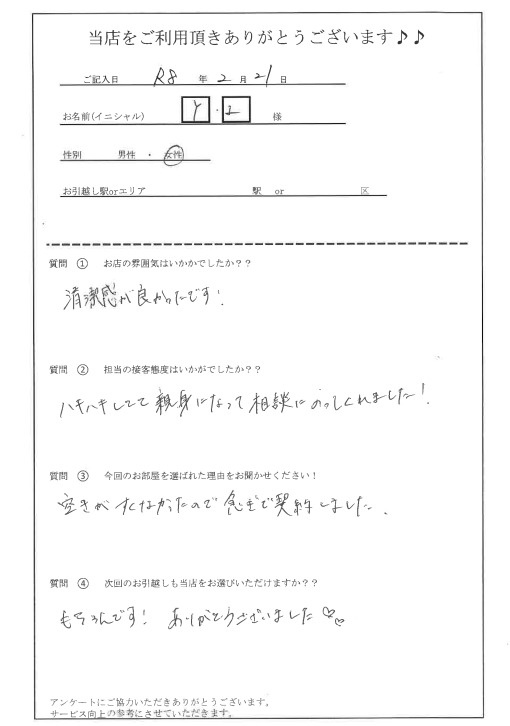 当店をご利用頂きありがとうございます♪♪
ご記入日 R8 年 2 月 21 日
お名前(イニシャル) Y・I 様
性別 男性 ・ 女性
お引越し駅orエリア 駅 or 区
質問 ① お店の雰囲気はいかかでしたか？？
清潔感が良かったです！
質問 ② 担当の接客態度はいかがでしたか？？
ハキハキしてて親身になって相談にのってくれました！
質問 ③ 今回のお部屋を選ばれた理由をお聞かせください！
空きがすくなかったので急ぎで契約しました.
質問 ④ 次回のお引越しも当店をお選びいただけますか？？
もちろんです！ ありがとうございました♡♡
アンケートにご協力いただきありがとうございます。
サービス向上の参考にさせていただきます。